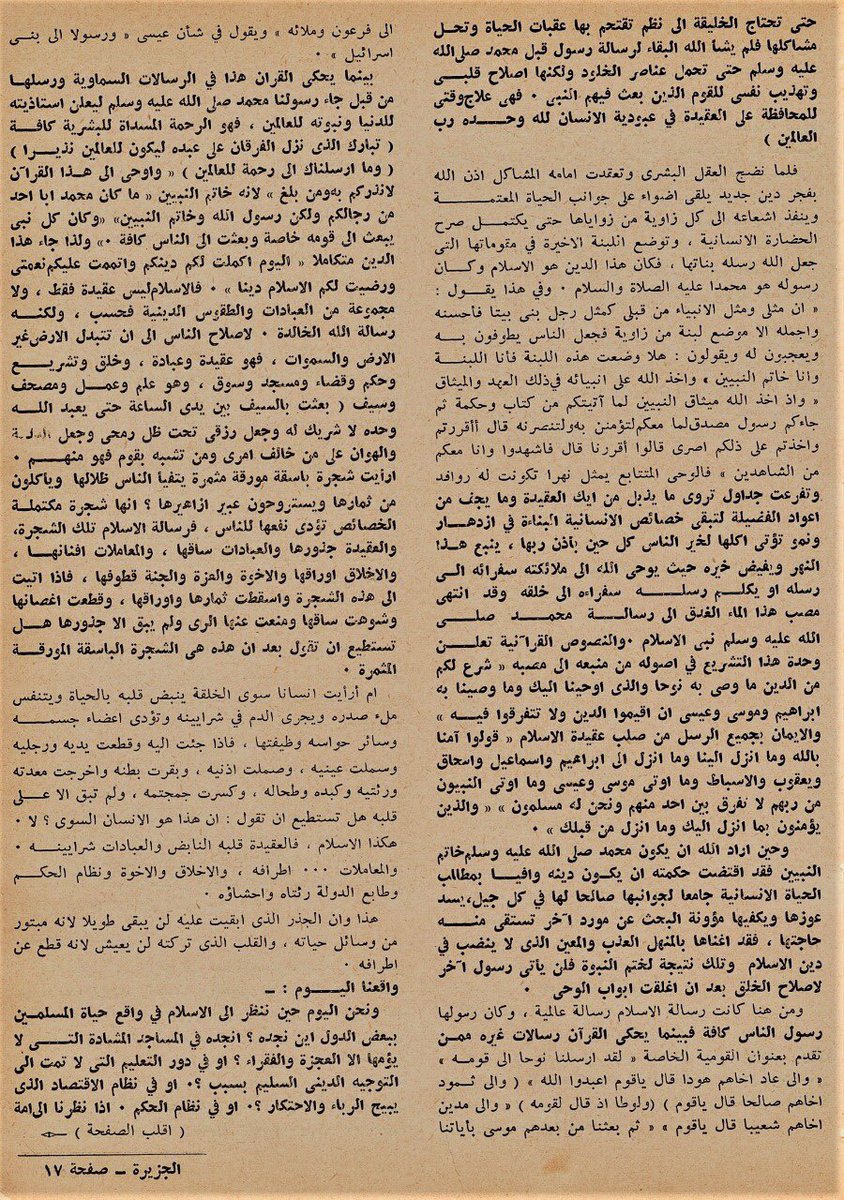 حتى تحتاج الخليقة الى نظم تقتحم بها عقبات الحياة وتحل
مشاكلها فلم يشأ الله البقاء لرسالة رسول قبل محمد صلى الله
عليه وسلم حتى تحمل عناصر الخلود ولكنها اصلاح قلبى
وتهذيب نفسى للقوم الذين بعث فيهم النبى ٠ فهى علاج وقتى
للمحافظة على العقيدة في عبودية الانسان لله وحده رب
العالمين )
فلما نضج العقل البشرى وتعقدت امامه المشاكل اذن الله
بفجر دين جديد يلقى اضواء على جوانب الحياة المعتمة
وينفذ اشعاعته الى كل زاوية من زواياها حتى يكتمل صرح
الحضارة الانسانية ، وتوضع اللبنة الاخيرة في مقوماتها التى
جعل الله رسله بناتها ، فكان هذا الدين هو الاسلام وكان
رسوله هو محمدا عليه الصلاة والسلام ٠ وفي هذا يقول :
« ان مثلى ومثل الانبياء من قبلى كمثل رجل بنى بيتا فأحسنه
واجمله الا موضع لبنة من زاوية فجعل الناس يطوفون به
ويعجبون له ويقولون : هلا وضعت هذه اللبنة فأنا اللبنة
وانا خاتم النبيين » واخذ الله على انبيائه في ذلك العهد والميثاق
« واذ اخذ الله ميثاق النبيين لما آتيتكم من كتاب وحكمة ثم
جاءكم رسول مصدق لما معكم لتؤمنن به ولتنصرنه قال أأقررتم
واخذتم على ذلكم اصرى قالوا أقررنا قال فاشهدوا وانا معكم
من الشاهدين » فالوحى المتتابع يمثل نهرا تكونت له روافد
وتفرعت جداول تروى ما يذبل من ايك العقيدة وما يجف من
اعواد الفضيلة لتبقى خصائص الانسانية البناءة في ازدهار
ونمو تؤتى اكلها لخير الناس كل حين بأذن ربها ، ينبع هذا
النهر ويفيض خيره حيث يوحى الله الى ملائكته سفرائه الى
رسله او يكلم رسله سفراءه الى خلقه وقد انتهى
مصب هذا الماء الغدق الى رسالة محمد صلى
الله عليه وسلم نبى الاسلام ٠ والنصوص القرآنية تعلن
وحدة هذا التشريع في اصوله من منبعه الى مصبه « شرع لكم
من الدين ما وصى به نوحا والذى اوحينا اليك وما وصينا به
ابراهيم وموسى وعيسى ان اقيموا الدين ولا تتفرقوا فيه »
والايمان بجميع الرسل من صلب عقيدة الاسلام « قولوا آمنا
بالله وما انزل الينا وما انزل الى ابراهيم واسماعيل واسحاق
ويعقوب والاسباط وما اوتى موسى وعيسى وما اوتى النبيون
من ربهم لا نفرق بين احد منهم ونحن له مسلمون » « والذين
يؤمنون بما انزل اليك وما انزل من قبلك » ٠
وحين اراد الله ان يكون محمد صلى الله عليه وسلم خاتم
النبيين فقد اقتضت حكمته ان يكون دينه وافيا بمطالب
الحياة الانسانية جامعا لجوانبها صالحا لها في كل جيل، يسد
عوزها ويكفيها مؤونة البحث عن مورد آخر تستقى منه
حاجتها ، فقد اغناها بالمنهل العذب والمعين الذى لا ينضب في
دين الاسلام وتلك نتيجة لختم النبوة فلن يأتى رسول آخر
لاصلاح الخلق بعد ان اغلقت ابواب الوحى ٠
ومن هنا كانت رسالة الاسلام رسالة عالمية ، وكان رسولها
رسول الناس كافة فبينما يحكى القرآن رسالات غيره ممن
تقدم بعنوان القومية الخاصة « لقد ارسلنا نوحا الى قومه »
« والى عاد اخاهم هودا قال ياقوم اعبدوا الله » ( والى ثمود
اخاهم صالحا قال ياقوم ) (ولوطا اذ قال لقومه ) « والى مدين
اخاهم شعيبا قال ياقوم » « ثم بعثنا من بعدهم موسى بآياتنا
الى فرعون وملائه » ويقول في شأن عيسى « ورسولا الى بنى
اسرائيل » ٠
بينما يحكى القران هذا في الرسالات السماوية ورسلها
من قبل جاء رسولنا محمد صلى الله عليه وسلم ليعلن استاذيته
للدنيا ونبوته للعالمين ، فهو الرحمة المسداة للبشرية كافة
( تبارك الذى نزل الفرقان على عبده ليكون للعالمين نذيرا )
( وما ارسلناك الا رحمة للعالمين ) « واوحى الى هذا القرآن
لانذركم به ومن بلغ » لانه خاتم النبيين « ما كان محمد ابا احد
من رجالكم ولكن رسول الله وخاتم النبيين» «وكان كل نبى
يبعث الى قومه خاصة وبعثت الى الناس كافة ٠» ولذا جاء هذا
الدين متكاملا « اليوم اكملت لكم دينكم واتممت عليكم نعمتى
ورضيت لكم الاسلام دينا » ٠ فالاسلام ليس عقيدة فقط ، ولا
مجموعة من العبادات والطقوس الدينية فحسب ، ولكنه
رسالة الله الخالدة ٠ لاصلاح الناس الى ان تتبدل الارض غير
الارض والسموات ، فهو عقيدة وعبادة ، وخلق وتشريع
وحكم وقضاء ومسجد وسوق ، وهو علم وعمل ومصحف
وسيف ( بعثت بالسيف بين يدى الساعة حتى يعبد الله
وحده لا شريك له وجعل رزقى تحت ظل رمحى وجعل الذلة
والهوان على من خالف امرى ومن تشبه بقوم فهو منهم ٠
ارأيت شجرة باسقة مورقة مثمرة يتفيأ الناس ظلالها ويأكلون
من ثمارها ويستروحون عبير ازاهيرها ؟ انها شجرة مكتملة
الخصائص تؤدى نفعها للناس ، فرسالة الاسلام تلك الشجرة،
والعقيدة جذورها والعبادات ساقها ، والمعاملات افنانها ،
والاخلاق اوراقها والاخوة والعزة والجنة قطوفها ، فاذا اتيت
الى هذه الشجرة واسقطت ثمارها واوراقها ، وقطعت اغصانها
وشوهت ساقها ومنعت عنها الرى ولم يبق الا جذورها هل
تستطيع ان تقول بعد ان هذه هى الشجرة الباسقة المورقة
المثمرة ٠
ام أرأيت انسانا سوى الخلقة ينبض قلبه بالحياة ويتنفس
ملء صدره ويجرى الدم في شرايينه وتؤدى اعضاء جسمه
وسائر حواسه وظيفتها ، فاذا جئت اليه وقطعت يديه ورجليه
وسملت عينيه ، وصملت اذنيه ، وبقرت بطنه واخرجت معدته
ورئتيه وكبده وطحاله ، وكسرت جمجمته ، ولم تبق الا على
قلبه هل تستطيع ان تقول : ان هذا هو الانسان السوى ؟ لا ٠
هكذا الاسلام ، فالعقيدة قلبه النابض والعبادات شرايينه ٠
والمعاملات ٠٠٠ اطرافه ، والاخلاق والاخوة ونظام الحكم
وطابع الدولة رئتاه واحشاؤه ٠
هذا وان الجذر الذى ابقيت عليه لن يبقى طويلا لانه مبتور
من وسائل حياته ، والقلب الذى تركته لن يعيش لانه قطع عن
اطرافه ٠
واقعنا اليوم : ــ
ونحن اليوم حين ننظر الى الاسلام في واقع حياة المسلمين
ببعض الدول اين نجده ؟ انجده في المساجد المشادة التى لا
يؤمها الا العجزة والفقراء ؟ او في دور التعليم التى لا تمت الى
التوجيه الدينى السليم بسبب ؟٠ او في نظام الاقتصاد الذى
يبيح الرباء والاحتكار ؟٠ او في نظام الحكم ٠ اذا نظرنا الى امة
( اقلب الصفحة )
الجزيرة ــ صفحة ١٧